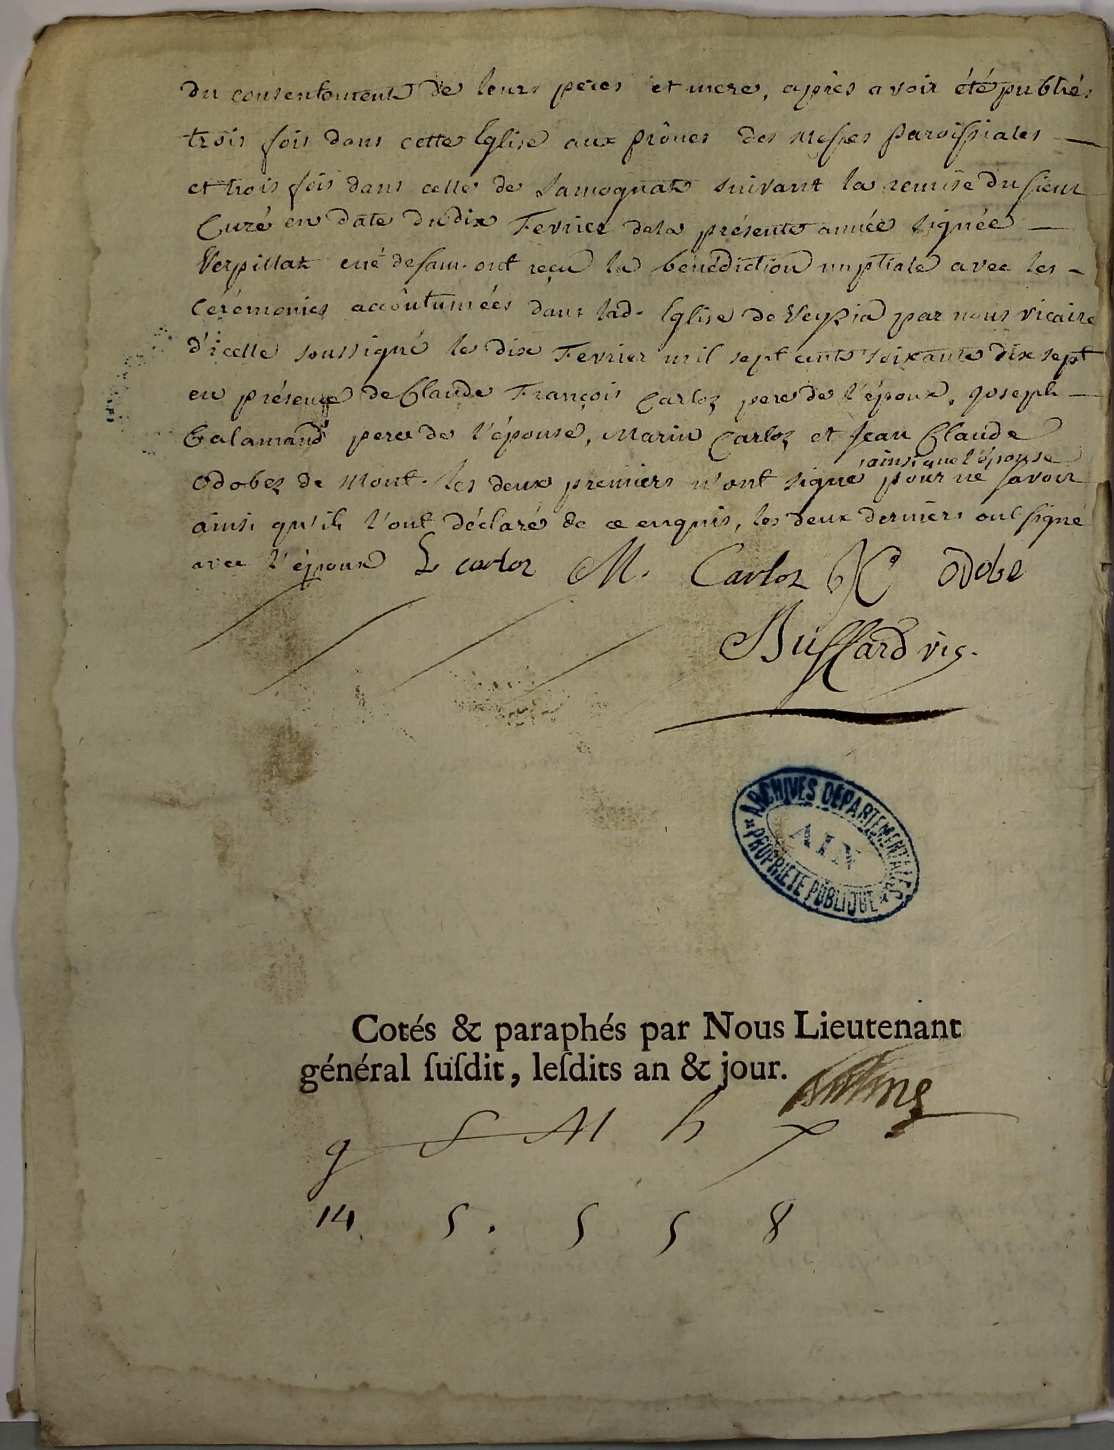 du consentement de leurs peres et mere, après avoir été publiés
trois fois dans cette Eglise aux prônes des Messes Paroissiales
et trois fois dans celle de Samognat suivant la remise du sieur
Curé en date du dix Fevrier de la présente année signée
Verpillat curé de Sam. ont reçu la bénédiction nuptiale avec les
Cérémonies accoûtumées dans lad. Eglise de Veyzia par nous vicaire
d'icelle soussigné le dix Fevrier mil sept cents soixante dix sept
en présence de Claude François Carloz pere de l'époux, Joseph
Galamand pere de l'épouse, Marin Carloz et Jean Claude
ainsi que l'épouse
Odobez de Mont. les deux premiers n'ont signé pour ne savoir
ainsi qu'ils l'ont déclaré de ce enquis, les deux derniers ont signé
avec l'époux L carloz M. Carloz JC odobe
Buffard vic.
ARCHIVES DÉPARTEMENTALES
AIN
PROPRIÉTÉ PUBLIQUE
Cotés & paraphés par Nous Lieutenant
général ſuſdit, leſdits an & jour.
9 S M h
14. 5. 5 5 8